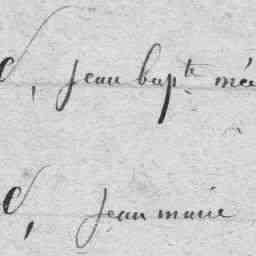 d, Jean bapte mé
d, Jean marie